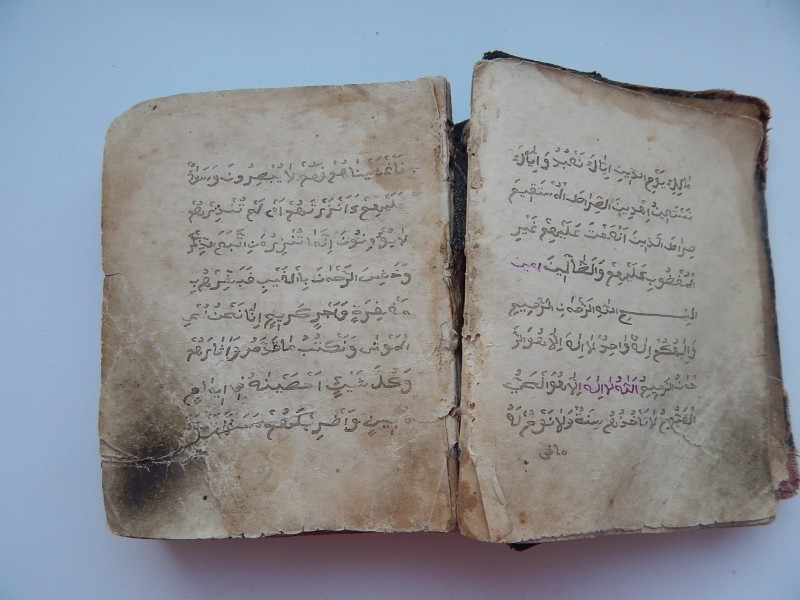 مٰلِكِ يَوْمِ الدِّينِ اِيَّاكَ نَعْبُدُ وَاِيَّاكَ
نَسْتَعِينُ اِهْدِينَ الصِّرَاطَ الْمُسْتَقِيمَ
صِرَاطَ الَّذِينَ اَنْعَمْتَ عَلَيْهِمْ غَيْرِ
الْمَغْضُوبِ عَلَيْهِمْ وَلَا الضَّالِّينَ امين
بسم الله الرَّحْمٰنِ الرَّحِيمِ
وَاِلٰهُكُمْ اِلٰهٌ وَاحِدٌ لَا اِلٰهَ اِلَّا هُوَ الرَّ
حْمٰنُ الرَّحِيمُ اَللّٰهُ لَا اِلٰهَ اِلَّا هُوَ الْحَيُّ
الْقَيُّومُ لَا تَأْخُذُهُ سِنَةٌ وَلَا نَوْمٌ لَهُ
مافى
فَاَغْشَيْنَاهُمْ فَهُمْ لَا يُبْصِرُونَ وَسَوَاءٌ
عَلَيْهِمْ ءَاَنْذَرْتَهُمْ اَمْ لَمْ تُنْذِرْهُمْ
لَا يُؤْمِنُونَ اِنَّمَا تُنْذِرُ مَنِ اتَّبَعَ الذِّكْرَ
وَخَشِيَ الرَّحْمٰنَ بِالْغَيْبِ فَبَشِّرْهُ بِ
مَغْفِرَةٍ وَاَجْرٍ كَرِيمٍ اِنَّا نَحْنُ نُحْيِ
الْمَوْتٰى وَنَكْتُبُ مَا قَدَّمُوا وَاٰثَارَهُمْ
وَكُلَّ شَيْءٍ اَحْصَيْنَاهُ فِي اِمَامٍ
مُبِينٍ وَاضْرِبْ لَهُمْ مَثَلًا